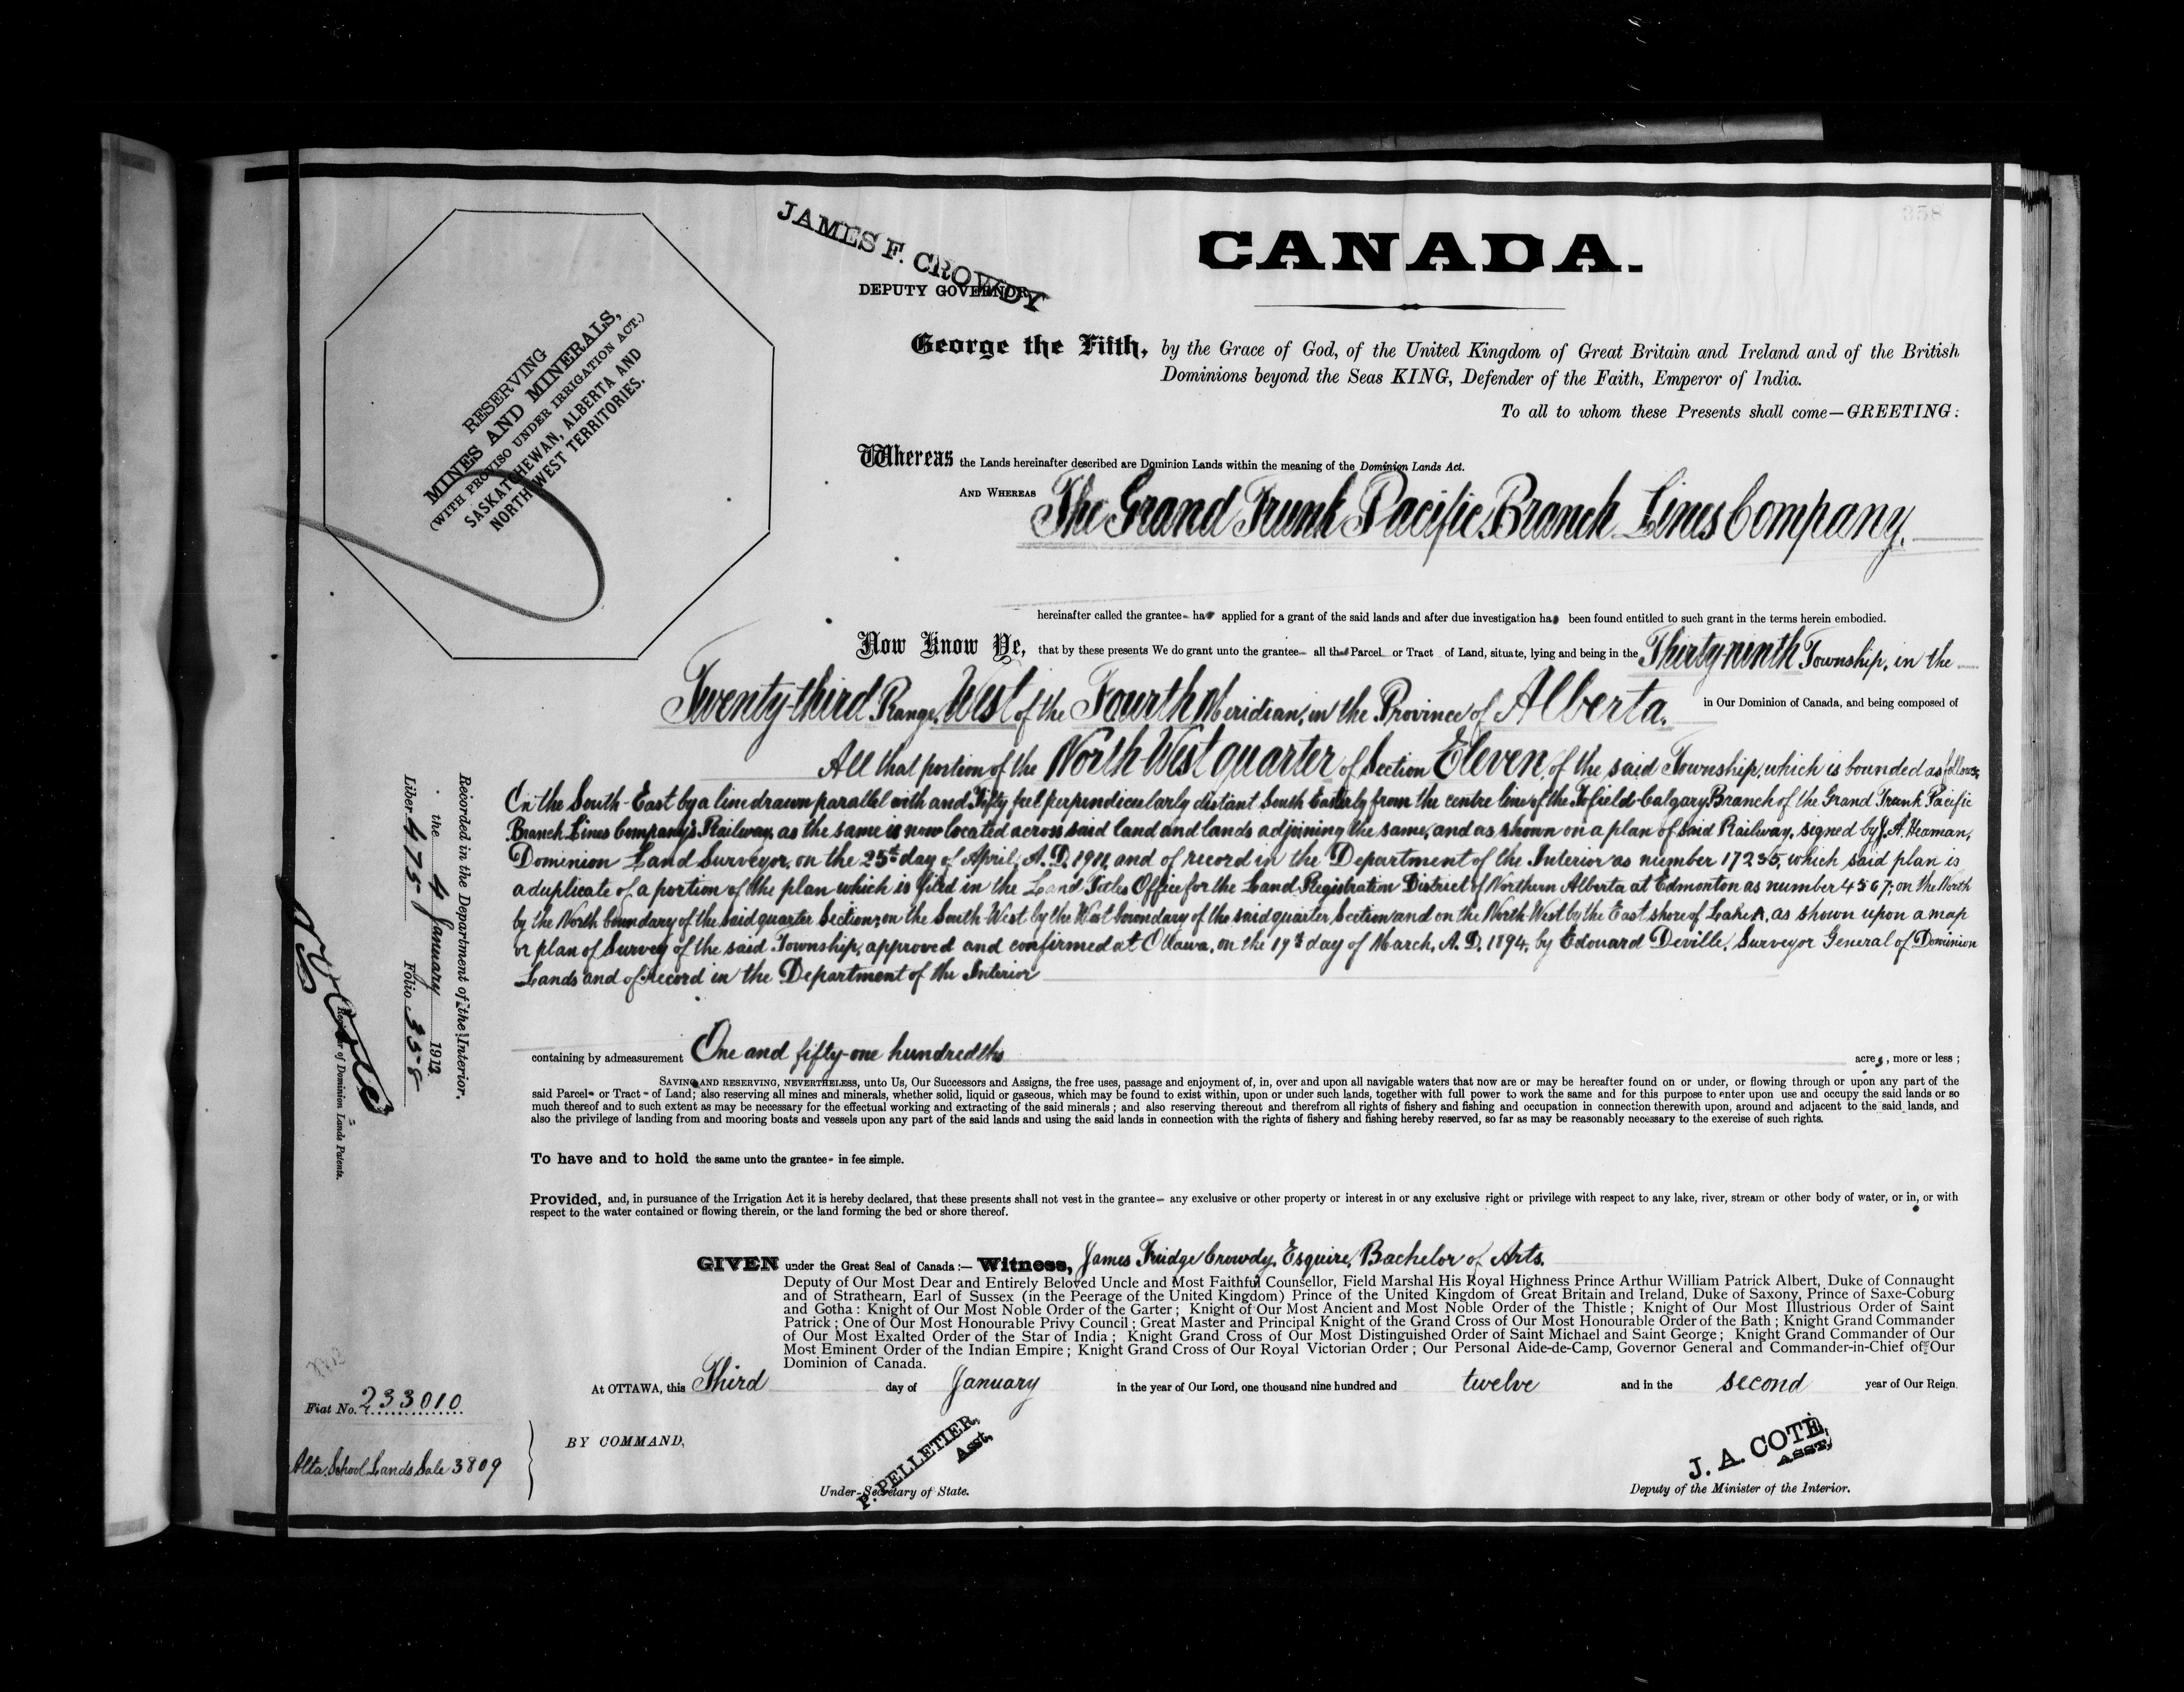 358
JAMES F. CROWDY
DEPUTY GOVERNOR
CANADA.
RESERVING
MINES AND MINERALS,
(WITH PROVISO UNDER IRRIGATION ACT.)
SASKATCHEWAN, ALBERTA AND
NORTH WEST TERRITORIES.
George the Fifth, by the Grace of God, of the United Kingdom of Great Britain and Ireland and of the British
Dominions beyond the Seas KING, Defender of the Faith, Emperor of India.
To all to whom these Presents shall come—GREETING:
Whereas the Lands hereinafter described are Dominion Lands within the meaning of the Dominion Lands Act.
AND WHEREAS The Grand Trunk Pacific Branch Lines Company,
hereinafter called the grantee- has applied for a grant of the said lands and after due investigation has been found entitled to such grant in the terms herein embodied.
Now Know Ye, that by these presents We do grant unto the grantee- all that Parcel or Tract of Land, situate, lying and being in the Thirty-ninth Township, in the
Twenty-third Range, West of the Fourth Meridian, in the Province of Alberta, in Our Dominion of Canada, and being composed of
All that portion of the North West quarter of Section Eleven, of the said Township, which is bounded as follows;
On the South-East by a line drawn parallel with and Fifty feet perpendicularly distant South Easterly from the centre line of the Tofield-Calgary Branch of the Grand Trunk Pacific
Branch Lines Company's Railway, as the same is now located across said land and lands adjoining the same, and as shown on a plan of said Railway, signed by J. A. Heaman,
Dominion Land Surveyor, on the 25th day of April, A. D. 1911, and of record in the Department of the Interior as number 17235, which said plan is
a duplicate of a portion of the plan which is filed in the Land Titles Office for the Land Registration District of Northern Alberta at Edmonton as number 4567; on the North
by the North boundary of the said quarter Section; on the South-West by the West boundary of the said quarter Section and on the North West by the East shore of Lake A, as shown upon a map
or plan of Survey of the said Township, approved and confirmed at Ottawa, on the 19th day of March, A. D. 1894, by Edouard Deville, Surveyor General of Dominion
Lands and of Record in the Department of the Interior
containing by admeasurement One and fifty-one hundredths acres, more or less;
SAVING AND RESERVING, NEVERTHELESS, unto Us, Our Successors and Assigns, the free uses, passage and enjoyment of, in, over and upon all navigable waters that now are or may be hereafter found on or under, or flowing through or upon any part of the
said Parcel- or Tract- of Land; also reserving all mines and minerals, whether solid, liquid or gaseous, which may be found to exist within, upon or under such lands, together with full power to work the same and for this purpose to enter upon use and occupy the said lands or so
much thereof and to such extent as may be necessary for the effectual working and extracting of the said minerals; and also reserving thereout and therefrom all rights of fishery and fishing and occupation in connection therewith upon, around and adjacent to the said lands, and
also the privilege of landing from and mooring boats and vessels upon any part of the said lands and using the said lands in connection with the rights of fishery and fishing hereby reserved, so far as may be reasonably necessary to the exercise of such rights.
To have and to hold the same unto the grantee- in fee simple.
Provided, and, in pursuance of the Irrigation Act it is hereby declared, that these presents shall not vest in the grantee- any exclusive or other property or interest in or any exclusive right or privilege with respect to any lake, river, stream or other body of water, or in, or with
respect to the water contained or flowing therein, or the land forming the bed or shore thereof.
GIVEN under the Great Seal of Canada:— Witness, James Fridge Crowdy, Esquire, Bachelor of Arts.
Deputy of Our Most Dear and Entirely Beloved Uncle and Most Faithful Counsellor, Field Marshal His Royal Highness Prince Arthur William Patrick Albert, Duke of Connaught
and of Strathearn, Earl of Sussex (in the Peerage of the United Kingdom) Prince of the United Kingdom of Great Britain and Ireland, Duke of Saxony, Prince of Saxe-Coburg
and Gotha: Knight of Our Most Noble Order of the Garter; Knight of Our Most Ancient and Most Noble Order of the Thistle; Knight of Our Most Illustrious Order of Saint
Patrick; One of Our Most Honourable Privy Council; Great Master and Principal Knight of the Grand Cross of Our Most Honourable Order of the Bath; Knight Grand Commander
of Our Most Exalted Order of the Star of India; Knight Grand Cross of Our Most Distinguished Order of Saint Michael and Saint George; Knight Grand Commander of Our
Most Eminent Order of the Indian Empire; Knight Grand Cross of Our Royal Victorian Order; Our Personal Aide-de-Camp, Governor General and Commander-in-Chief of Our
Dominion of Canada.
At OTTAWA, this Third day of January in the year of Our Lord, one thousand nine hundred and twelve and in the second year of Our Reign.
BY COMMAND,
P. PELLETIER,
Asst.
Under-Secretary of State.
J. A. COTE,
ASST.
Deputy of the Minister of the Interior.
Recorded in the Department of the Interior.
the 4 January 1912.
Liber 475 Folio 358
Registrar of Dominion Lands Patents.
Fiat No. 233010
Alta. School Lands Sale 3809